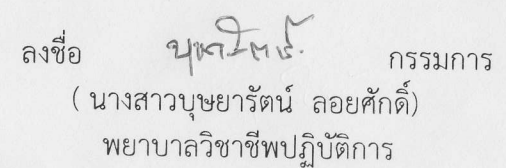 ลงชื่อ กรรมการ
( นางสาวบุษยารัตน์ ลอยศักดิ์)
พยาบาลวิชาชีพปฏิบัติการ